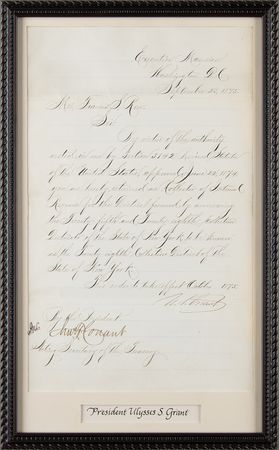 Executive Mansion
Washington D.C.
September 25, 1875.
Mr.
Sir
By virtue of the authority
vested in me by Section 3142 Revised Statutes
of the United States, approved June 22, 1874
you are hereby retained as Collector of Internal
Revenue for the District formed by annexing
the Twenty fifth and Twenty eighth Collection
Districts of the State of New York to be known
as the Twenty eighth Collection District of the
State of New York.
This order to take effect October 1875
U. S. Grant
By the President
Chas. F. Conant
Acting Secretary of the Treasury
President Ulysses S Grant